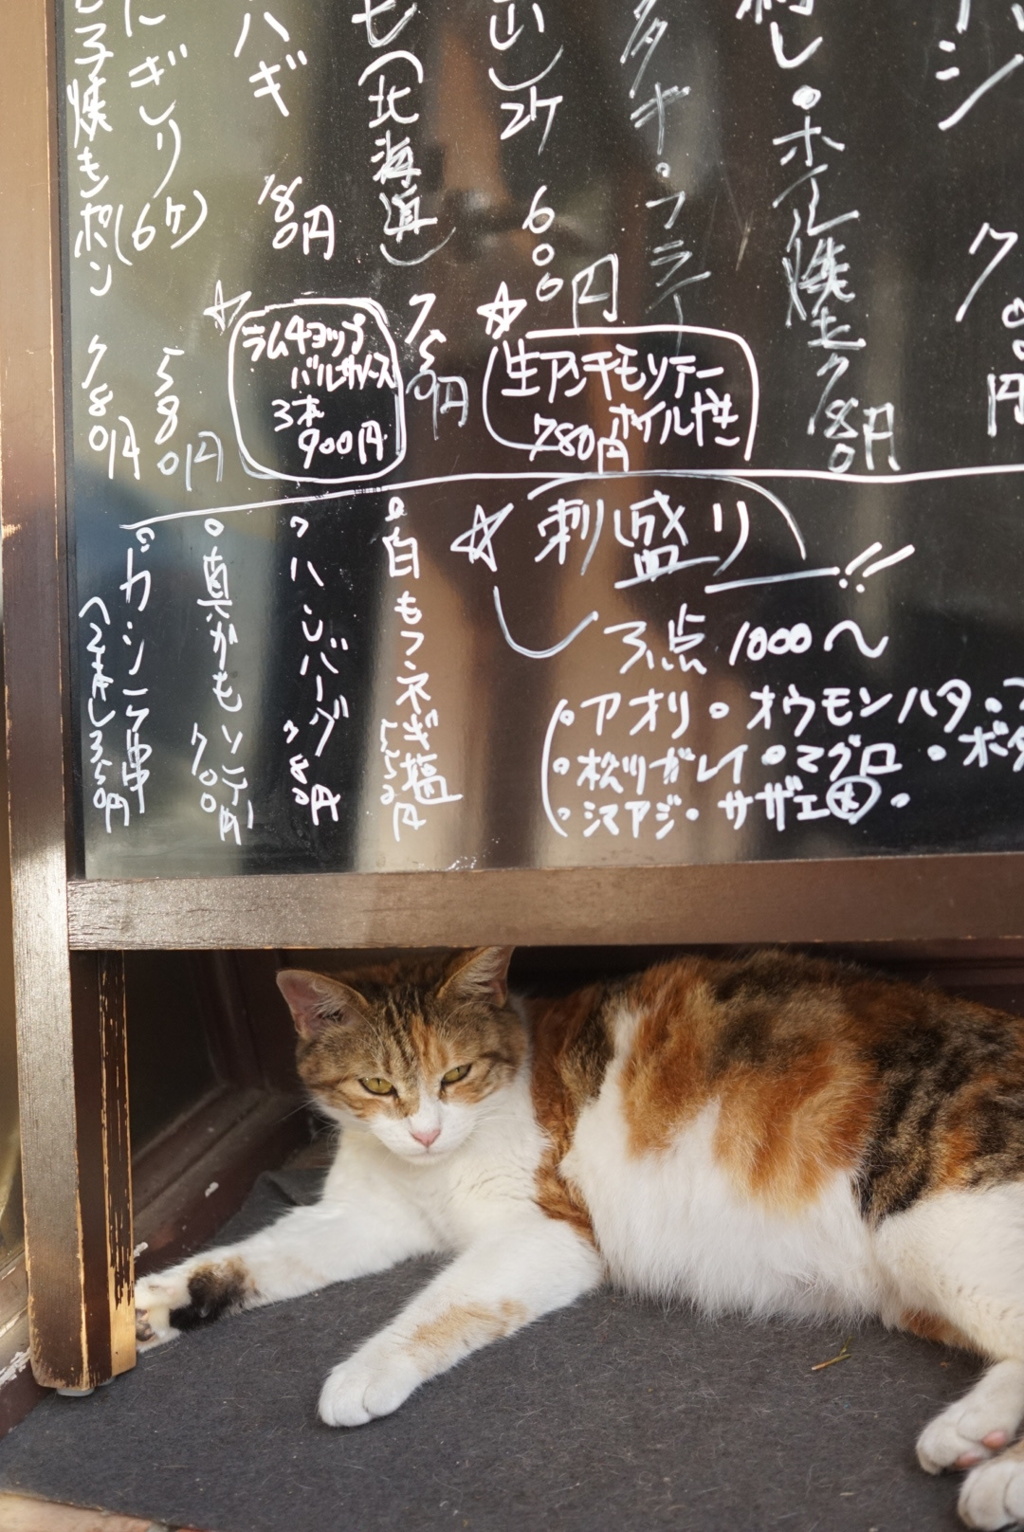 シ
ク
円
刺し・ホイル焼き 780円
フライ
2ケ 600円
も(北海道) 750円
ハギ 180円
にぎり(6ケ) 580円
子焼きポン 780円
☆ 生アンチモソテー
ホイル焼き
780円
☆ ラムチョップ
バルサソース
3本
900円
☆ 刺盛り!!
3点 1000〜
(・アオリ・オウモンハタ・
・松ツガレイ・マグロ・ボタ
・シマアジ・サザエ
・白もつネギ塩 550円
・ハンバーグ 780円
・真がもソテー 700円
・カシラ串
(2本) 350円